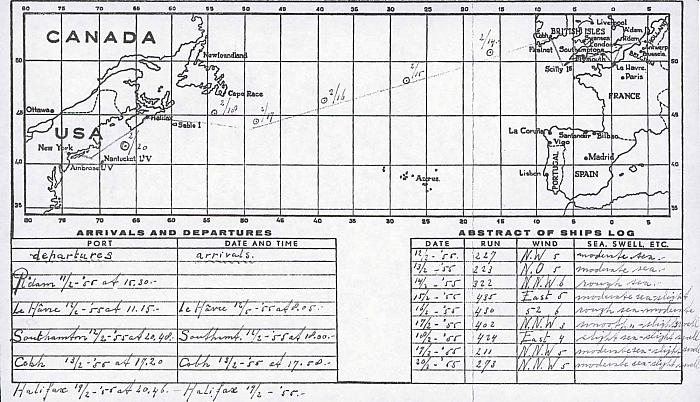 80 75 70 65 60 55 50 45 40 35 30 25 20 15 10 5 0 5
CANADA
USA
Newfoundland
Cape Race
Ottawa
Halifax
Sable I
New York
Nantucket LV
Ambrose LV
2/20
2/18
2/17
2/16
2/15
2/14
Azres
BRITISH ISLES
Liverpool
Cobh
Fastnet
Swansea
London
Southampton
Plymouth
Scilly Is
A'dam
R'dam
Antwerp
Brussels
BELGIUM
Le Havre
Paris
FRANCE
La Coruña
Santander
Bilbao
Vigo
Madrid
Lisbon
PORTUGAL
SPAIN
50
45
40
35
50
45
40
35
80 75 70 65 60 55 50 45 40 35 30 25 20 15 10 5 0 5
ARRIVALS AND DEPARTURES
PORT DATE AND TIME
departures arrivals.
R'dam 11/2-'55 at 15.30.-
Le Hâvre 12/2-'55 at 11.15.- Le Hâvre 12/2-'55 at 8.05.-
Southamton 12/2-'55 at 20,48.- Southamt. 12/2-'55 at 18.00.-
Cobh 13/2-'55 at 17.20 Cobh 13/2-'55 at 17.50.-
Halifax 19/2-'55 at 20.46.- Halifax 19/2-'55.-
ABSTRACT OF SHIPS LOG
DATE RUN WIND SEA, SWELL, ETC.
12/2-'55. 227 N.W 5 moderate sea.
13/2-'55 223 N.O 5 moderate sea.
14/2-'55 322 N.N.W 6 rough sea.
15/2-'55 435 East 5 moderate sea-slight
16/2-'55 430 rough sea-moderate
17/2-'55 402 N.N.W 3 smooth-slight swell
18/2-'55 424 East 4 slight sea-slight swell
19/2-'55 211 N.N.W 5 moderate sea-slight swell
20/2-'55 273 N.N.W 5 moderate sea-slight swell